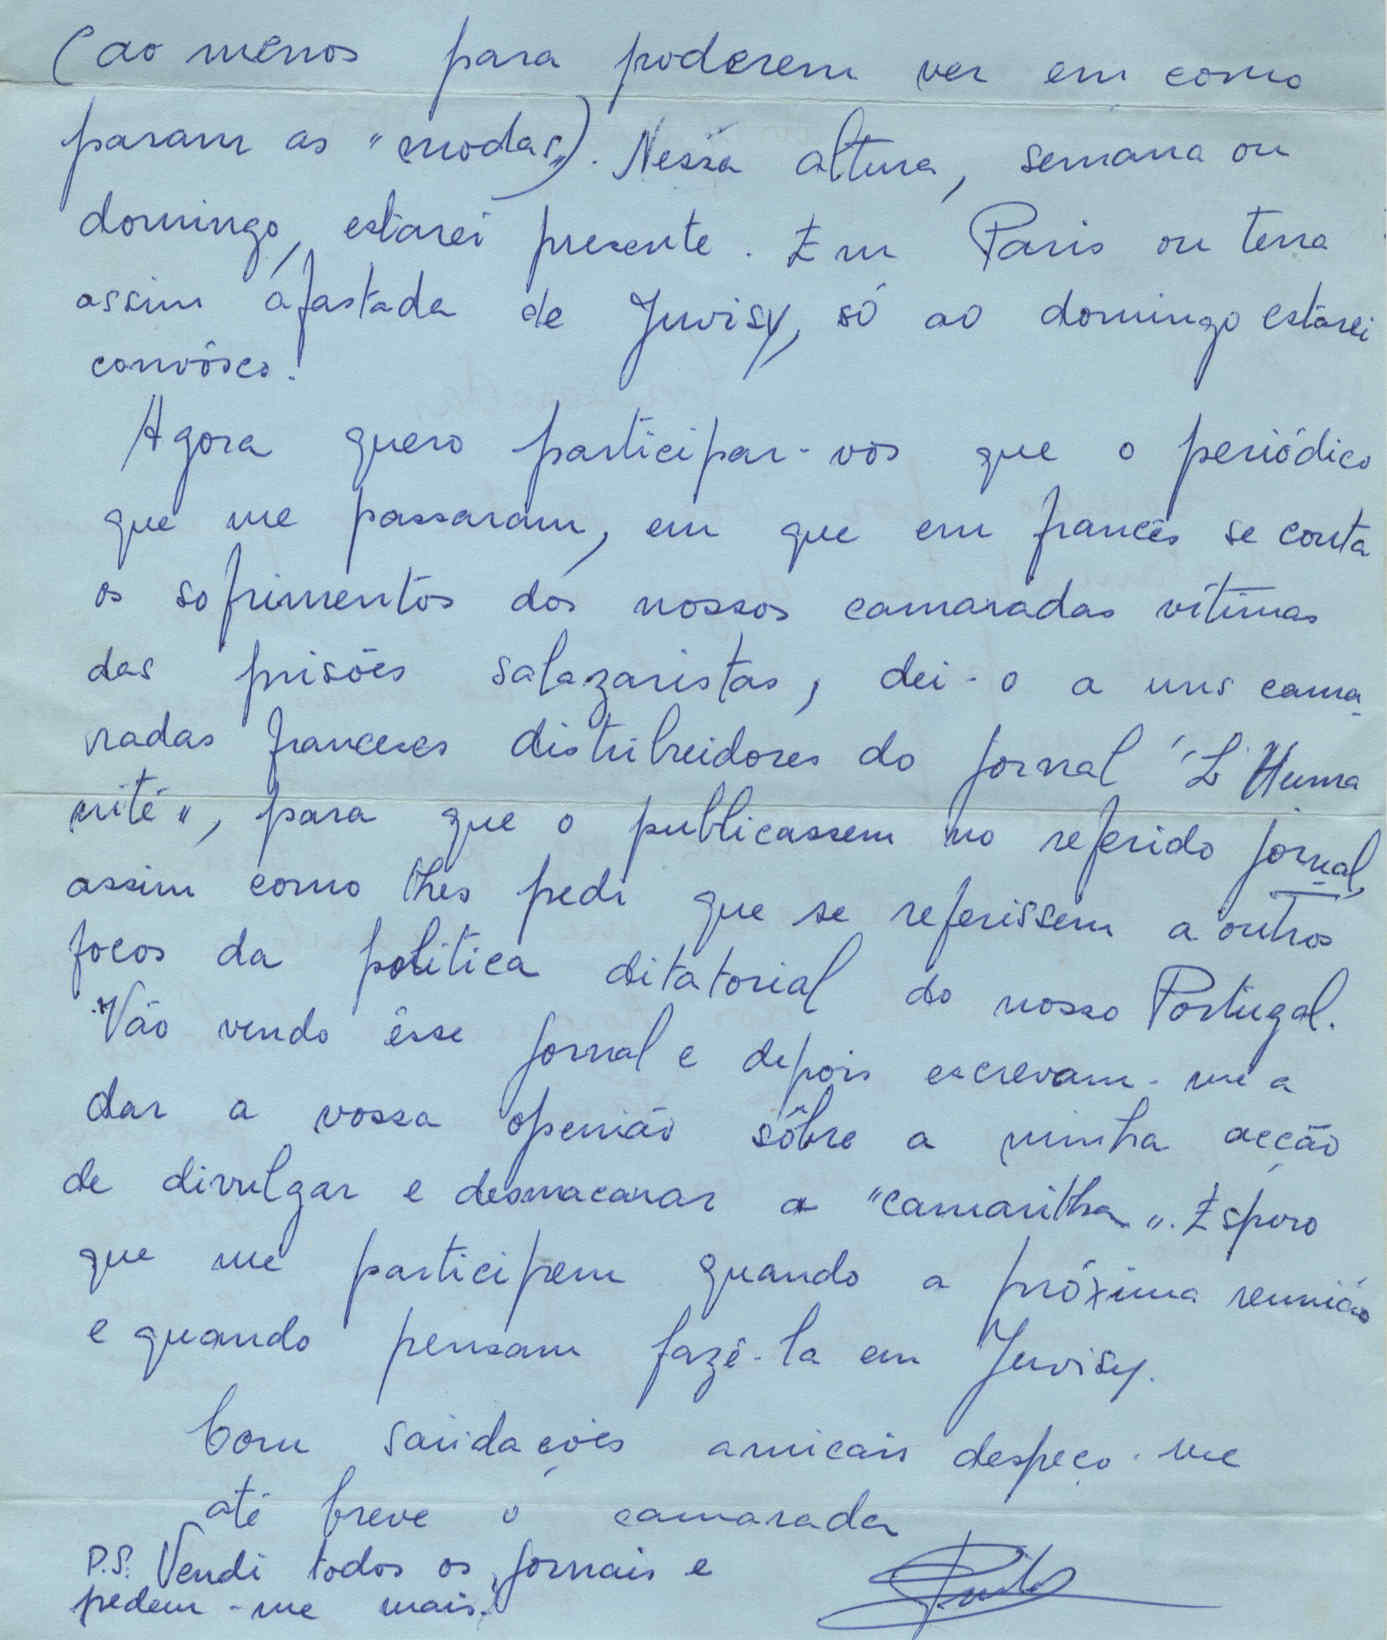 (ao menos para poderem ver em como
param as "modas"). Nessa altura, semana ou
domingo, estarei presente. Em Paris ou terra
assim afastada de Juvisy, só ao domingo estarei
convôsco.
Agora quero participar-vos que o periódico
que me passaram, em que em francês se conta
os sofrimentos dos nossos camaradas vítimas
das prisões salazaristas, dei-o a uns cama-
radas franceses distribuidores do jornal "L'Huma
nité", para que o publicassem no referido jornal,
assim como lhes pedi que se referissem a outros
focos da política ditatorial do nosso Portugal.
Vão vendo êsse jornal e depois escrevam-me a
dar a vossa openião sôbre a minha acção
de divulgar e desmacarar a "camarilha". Espero
que me participem quando a próxima reunião
e quando pensam fazê-la em Juvisy.
Com saudações amicais despeço-me
até breve o camarada
P.S. Vendi todos os jornais e
pedem-me mais.